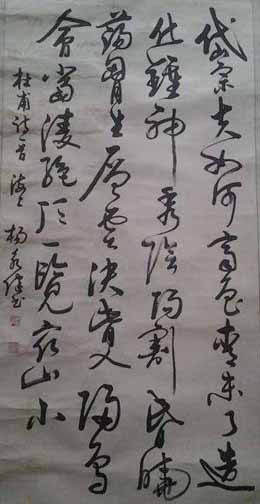 岱宗夫如何齊魯青未了造
化鍾神秀陰陽割昏曉
蕩胸生層雲決眥入歸鳥
會當凌絕頂一覽衆山小
杜甫詩一首 海上 楊